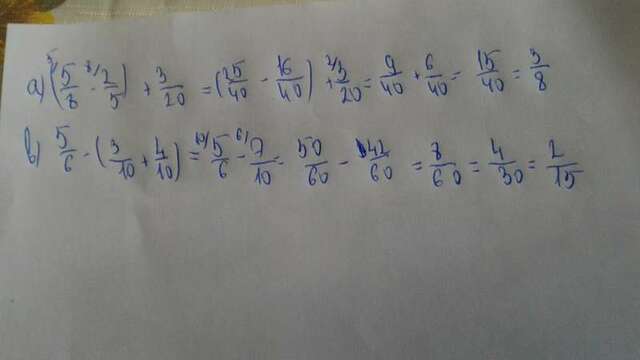 a) (⁵⁾5/8 - ⁸⁾2/5) + 3/20 = (25/40 - 16/40) + ²⁾3/20 = 9/40 + 6/40 = 15/40 = 3/8
b) 5/6 - (3/10 + 4/10) = ¹⁰⁾5/6 - ⁶⁾7/10 = 50/60 - 42/60 = 8/60 = 4/30 = 2/15